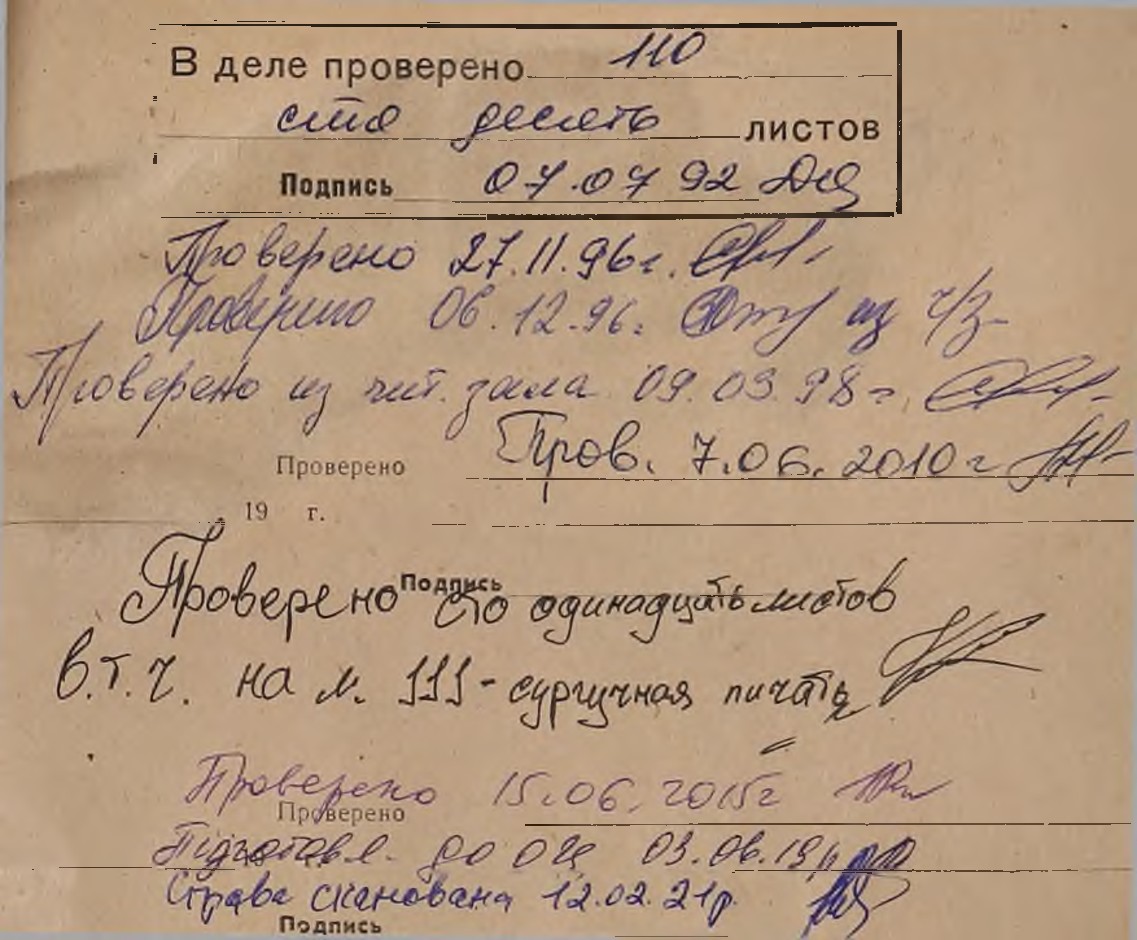 В деле проверено 110
сто десять листов
Подпись 07.07 92
Проверено 27.11.96г.
Проверено 06.12.96г. из ч/з
Проверено из чит. зала 09.03.98г.
Проверено Пров. 7.06.2010г
19 г.
Подпись
Проверено сто одинадцать листов
в.т.ч. на л. 111-сургучная пичать
Проверено 15.06.2015г
Проверено
Підготовл. до ОЦ 03.06.19р
Справа сканована 12.02.21р.
Подпись